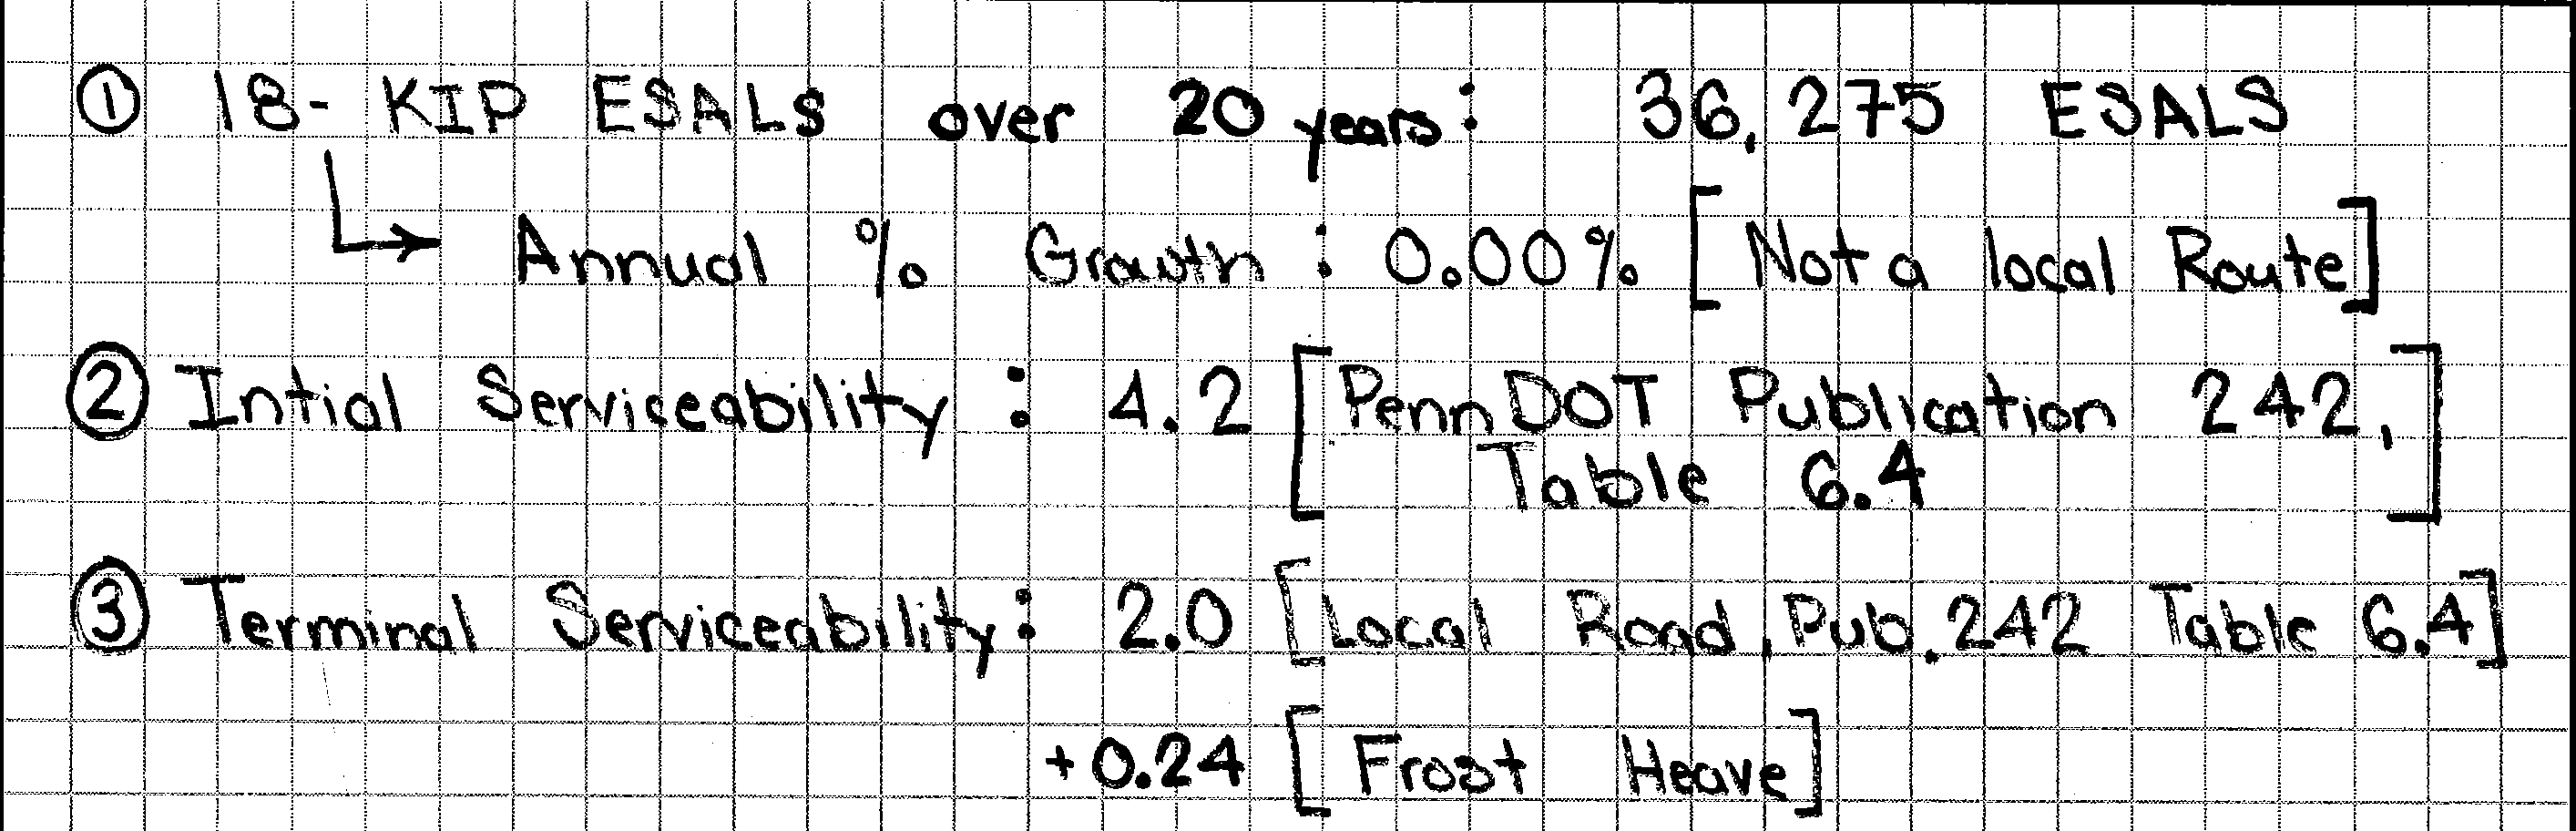 ① 18- KIP ESALs over 20 years: 36,275 ESALS
↳ Annual % Growth: 0.00% [Not a local Route]
② Intial Serviceability: 4.2 [PennDOT Publication 242,
Table 6.4]
③ Terminal Serviceability: 2.0 [Local Road, Pub. 242 Table 6.4]
+0.24 [Frost Heave]